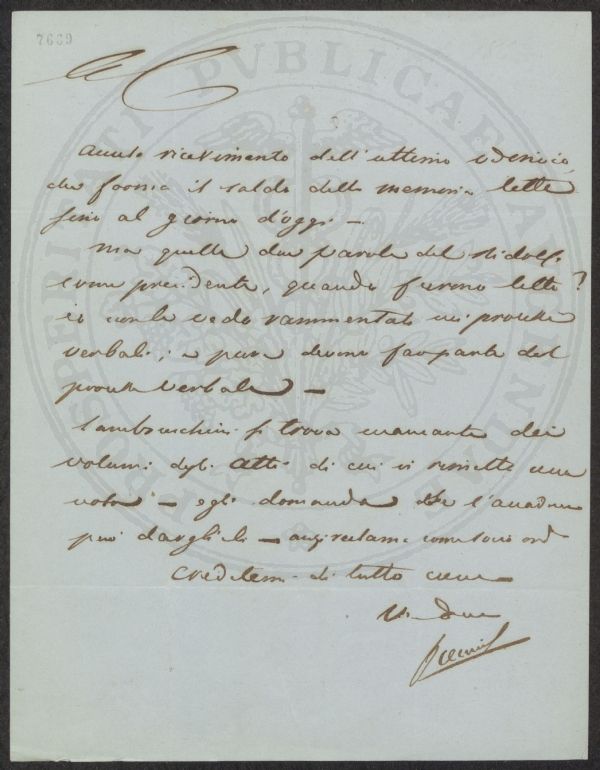 7669
A C
PROSPERITATI PVBLICAE AVGENDAE
Accuso ricevimento dell'ultimo
che forma il saldo delle memorie lette
fino al giorno d'oggi –
Ma quelle due parole del Ridolfi
come presidente, quando furono lette?
io non le vedo rammentate nei processi
verbali; e pure devono far parte del
processo verbale –
Lambruschini si trova mancante dei
volumi degli Atti di cui vi rimetto una
nota – egli domanda se l'accadema
può darglieli – anzi reclama come socio ord
Credetemi di tutto cuore